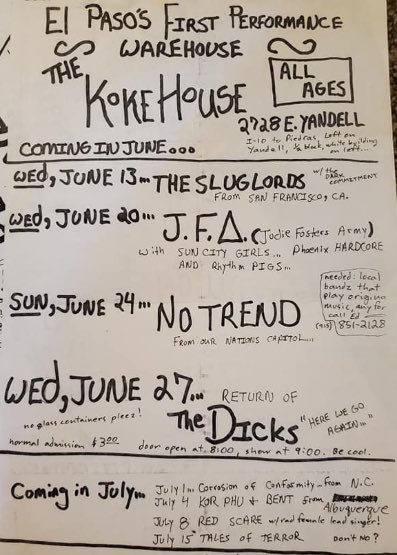 El Paso's First Performance
Warehouse
The
KokeHouse
ALL
AGES
2728 E. YANDELL
I-10 to Piedras, Left on
Yandell, 1/2 block, white building
on left...
COMING IN JUNE...
Wed, JUNE 13... THE SLUGLORDS
w/ the
DARK
COMMITMENT
FROM SAN FRANCISCO, CA.
Wed, JUNE 20... J.F.A. (Jodie Fosters Army)
with SUN CITY GIRLS... Phoenix HARDCORE
AND Rhythm PIGS...
SUN, JUNE 24... NO TREND
FROM OUR NATIONS CAPITOL...
needed: local
bandz that
play original
music, any for
call Ed
(915) 851-2128
WED, JUNE 27... RETURN OF
The DICKS
"HERE WE GO
AGAIN..."
no glass containers pleez!
normal admission $3.00
door open at 8:00, show at 9:00. Be cool.
Coming in July...
July 1... Corrosion of Conformity... from N.C.
July 4 KOR PHU + BENT from
Albuquerque
July 8 RED SCARE w/rad female lead singer!
July 15 TALES OF TERROR Don't No?